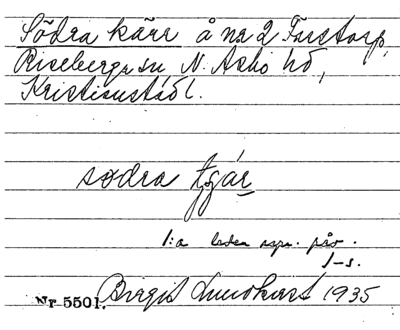 Södra kärr å nr 2 Färstorp,
Riseberga sn N. Åsbo hd,
Kristianstads l.
södra tjár
1:a leden sign. påv.
J-s.
Nr 5501. Birgit Lundkvist 1935